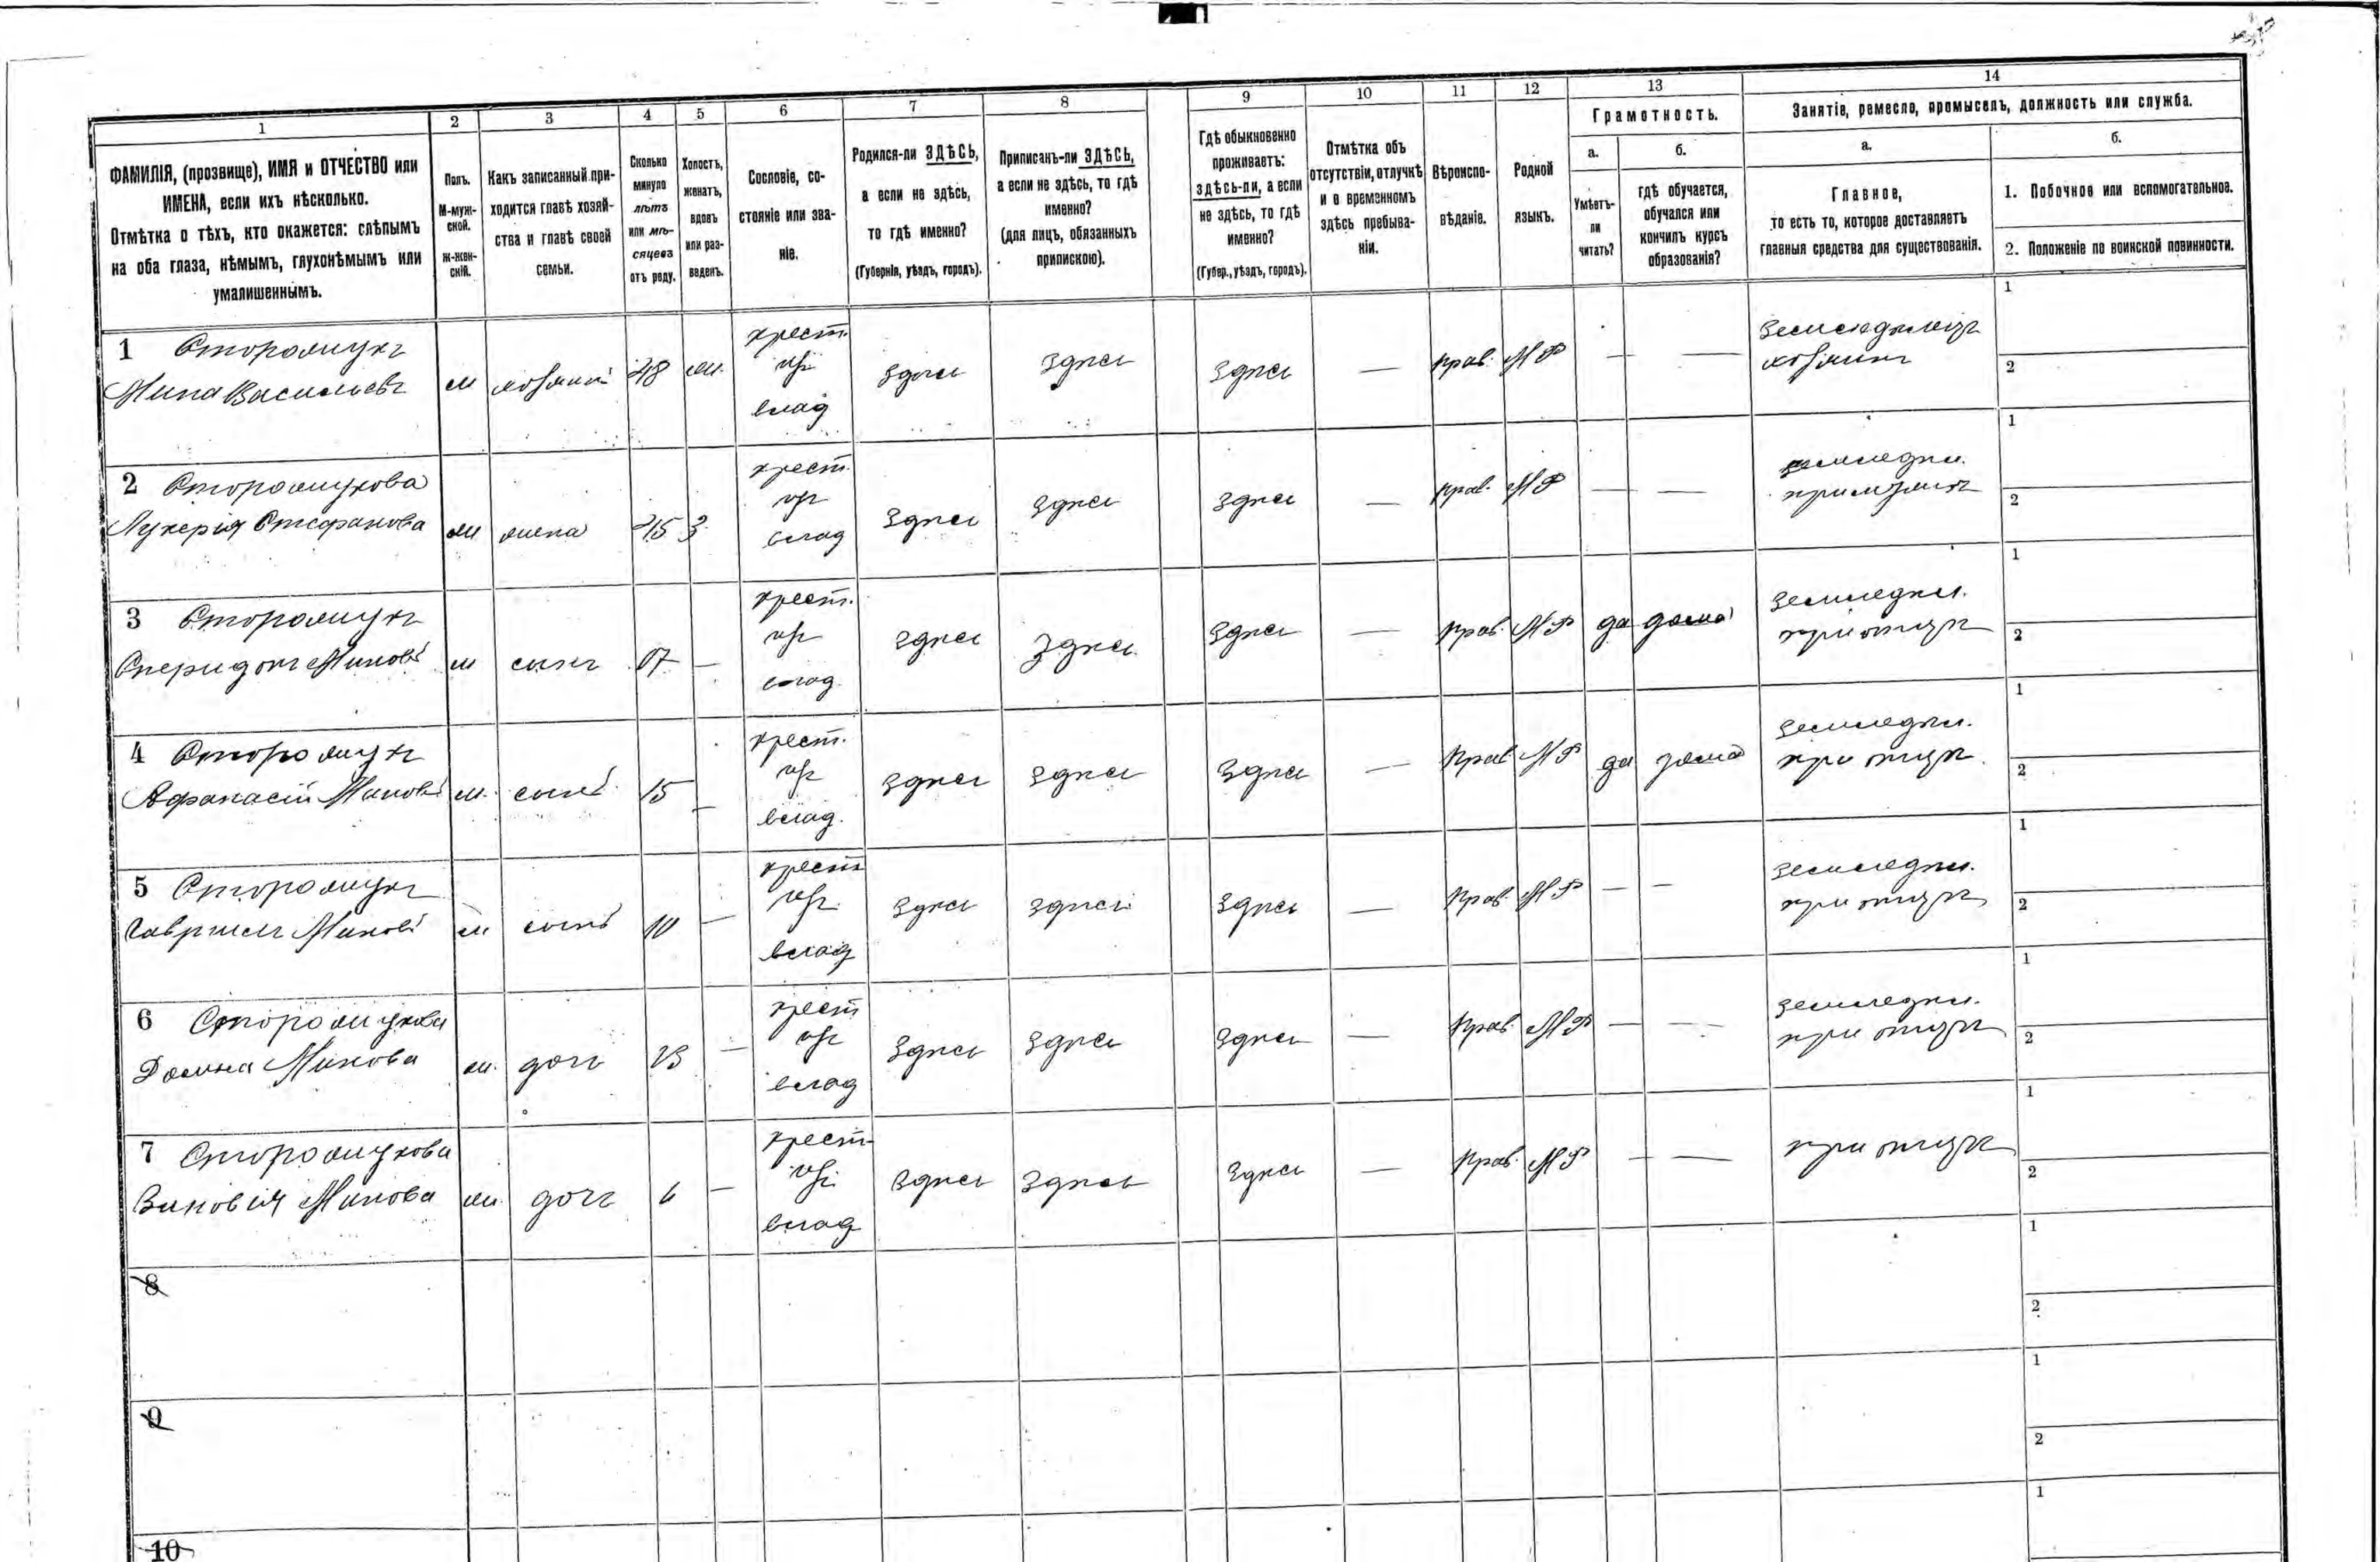 1
2
3
4
5
6
7
8
9
10
11
12
13
14
ФАМИЛІЯ, (прозвище), ИМЯ и ОТЧЕСТВО или
ИМЕНА, если ихъ нѣсколько.
Отмѣтка о тѣхъ, кто окажется: слѣпымъ
на оба глаза, нѣмымъ, глухонѣмымъ или
умалишеннымъ.
Полъ.
М-муж-
ской.
ж-жен-
скій.
Какъ записанный при-
ходится главѣ хозяй-
ства и главѣ своей
семьи.
Сколько
минуло
лѣтъ
или мѣ-
сяцевъ
отъ роду.
Холостъ,
женатъ,
вдовъ
или раз-
веденъ.
Сословіе, со-
стояніе или зва-
ніе.
Родился-ли ЗДѢСЬ,
а если не здѣсь,
то гдѣ именно?
(Губернія, уѣздъ, городъ).
Приписанъ-ли ЗДѢСЬ,
а если не здѣсь, то гдѣ
именно?
(для лицъ, обязанныхъ
припискою).
Гдѣ обыкновенно
проживаетъ:
здѣсь-ли, а если
не здѣсь, то гдѣ
именно?
(Губер., уѣздъ, городъ).
Отмѣтка объ
отсутствіи, отлучкѣ
и о временномъ
здѣсь пребыва-
ніи.
Вѣроиспо-
вѣданіе.
Родной
языкъ.
Грамотность.
а.
Умѣетъ-
ли
читать?
б.
гдѣ обучается,
обучался или
кончилъ курсъ
образованія?
Занятіе, ремесло, промыселъ, должность или служба.
а.
Главное,
то есть то, которое доставляетъ
главныя средства для существованія.
б.
1. Побочное или вспомогательное.
2. Положеніе по воинской повинности.
1 Сторожукъ
Мина Васильевъ
м
хозяинъ
48
ж.
крест.
влад
здѣсь
здѣсь
здѣсь
—
прав.
МР
—
—
земледѣлецъ
хозяинъ
1
2
2 Сторожукова
Лукерія Стефанова
ж
жена
45
З
крест.
влад
здѣсь
здѣсь
здѣсь
—
прав.
МР
—
—
земледѣл.
1
2
3 Сторожукъ
Сперидонъ Миновъ
м
сынъ
17
—
крест.
влад.
здѣсь
здѣсь
здѣсь
—
прав.
МР
да
дома
земледѣл.
при отцѣ
1
2
4 Сторожукъ
Афанасій Миновъ
м.
сынъ
15
—
крест.
влад.
здѣсь
здѣсь
здѣсь
—
прав.
МР
да
дома
земледѣл.
при отцѣ
1
2
5 Сторожукъ
Гавріилъ Миновъ
м
сынъ
10
—
крест
влад
здѣсь
здѣсь
здѣсь
—
прав.
МР
—
—
земледѣл.
при отцѣ
1
2
6 Сторожукова
Домна Минова
ж.
дочь
—
крест
влад
здѣсь
здѣсь
здѣсь
—
прав.
МР
—
—
земледѣл.
при отцѣ
1
2
7 Сторожукова
Зиновія Минова
ж.
дочь
6
—
крест
влад
здѣсь
здѣсь
здѣсь
—
прав.
МР
—
—
при отцѣ
1
2
8
1
2
9
1
2
10
1